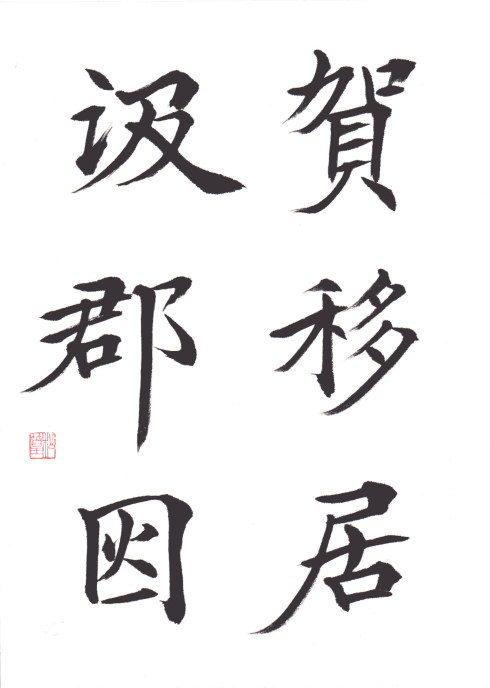 賀移居
汲郡因